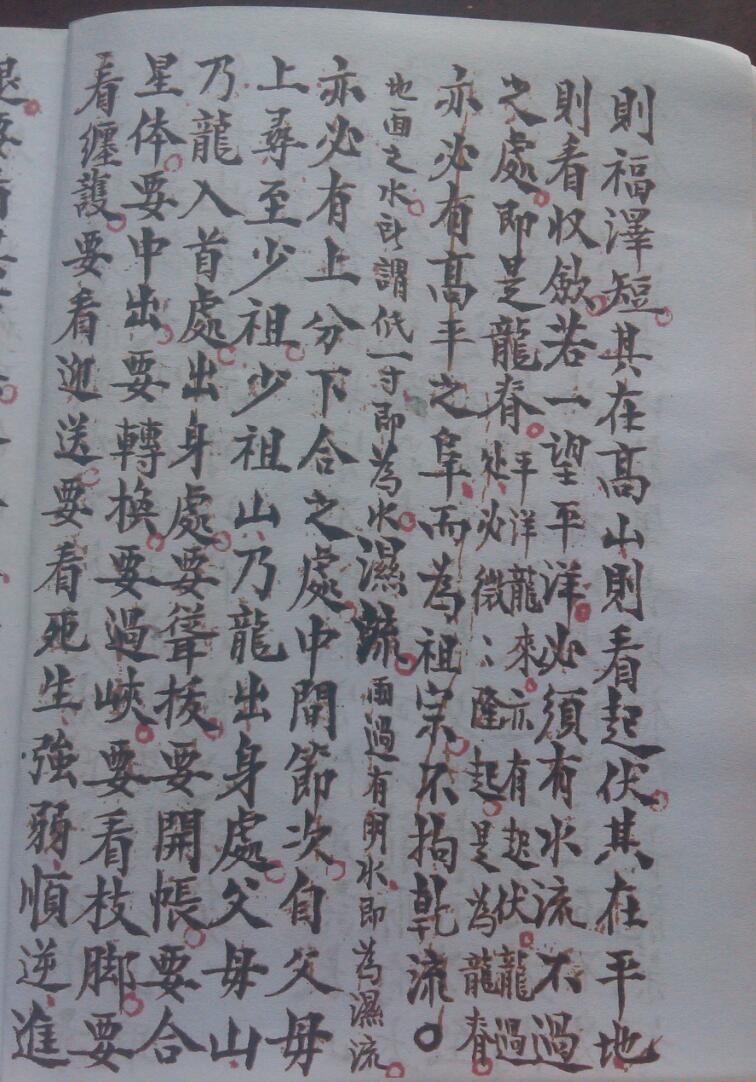 則福澤短其在高山則看起伏其在平地
則看収斂若一望平洋必須有水流不過
之處即是龍脊平洋龍來亦有起伏龍過处必微〻隆起是為龍脊
亦必有高平之阜而為祖宗不拘乾流
地面之水所謂低一寸即為水濕流雨過有明水即為濕流
亦必有上分下合之處中間節次自父母
上尋至少祖少祖山乃龍出身處父母山
乃龍入首處出身處要聳拔要開帳要合
星体要中出要轉換要過峽要看枝脚要
看纏護要看迎送要看死生強弱順逆進
退要看